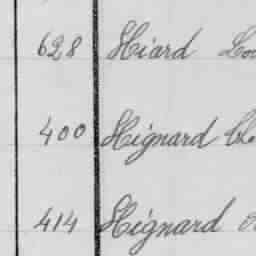 628 Hiard
400 Hignard
414 Hignard